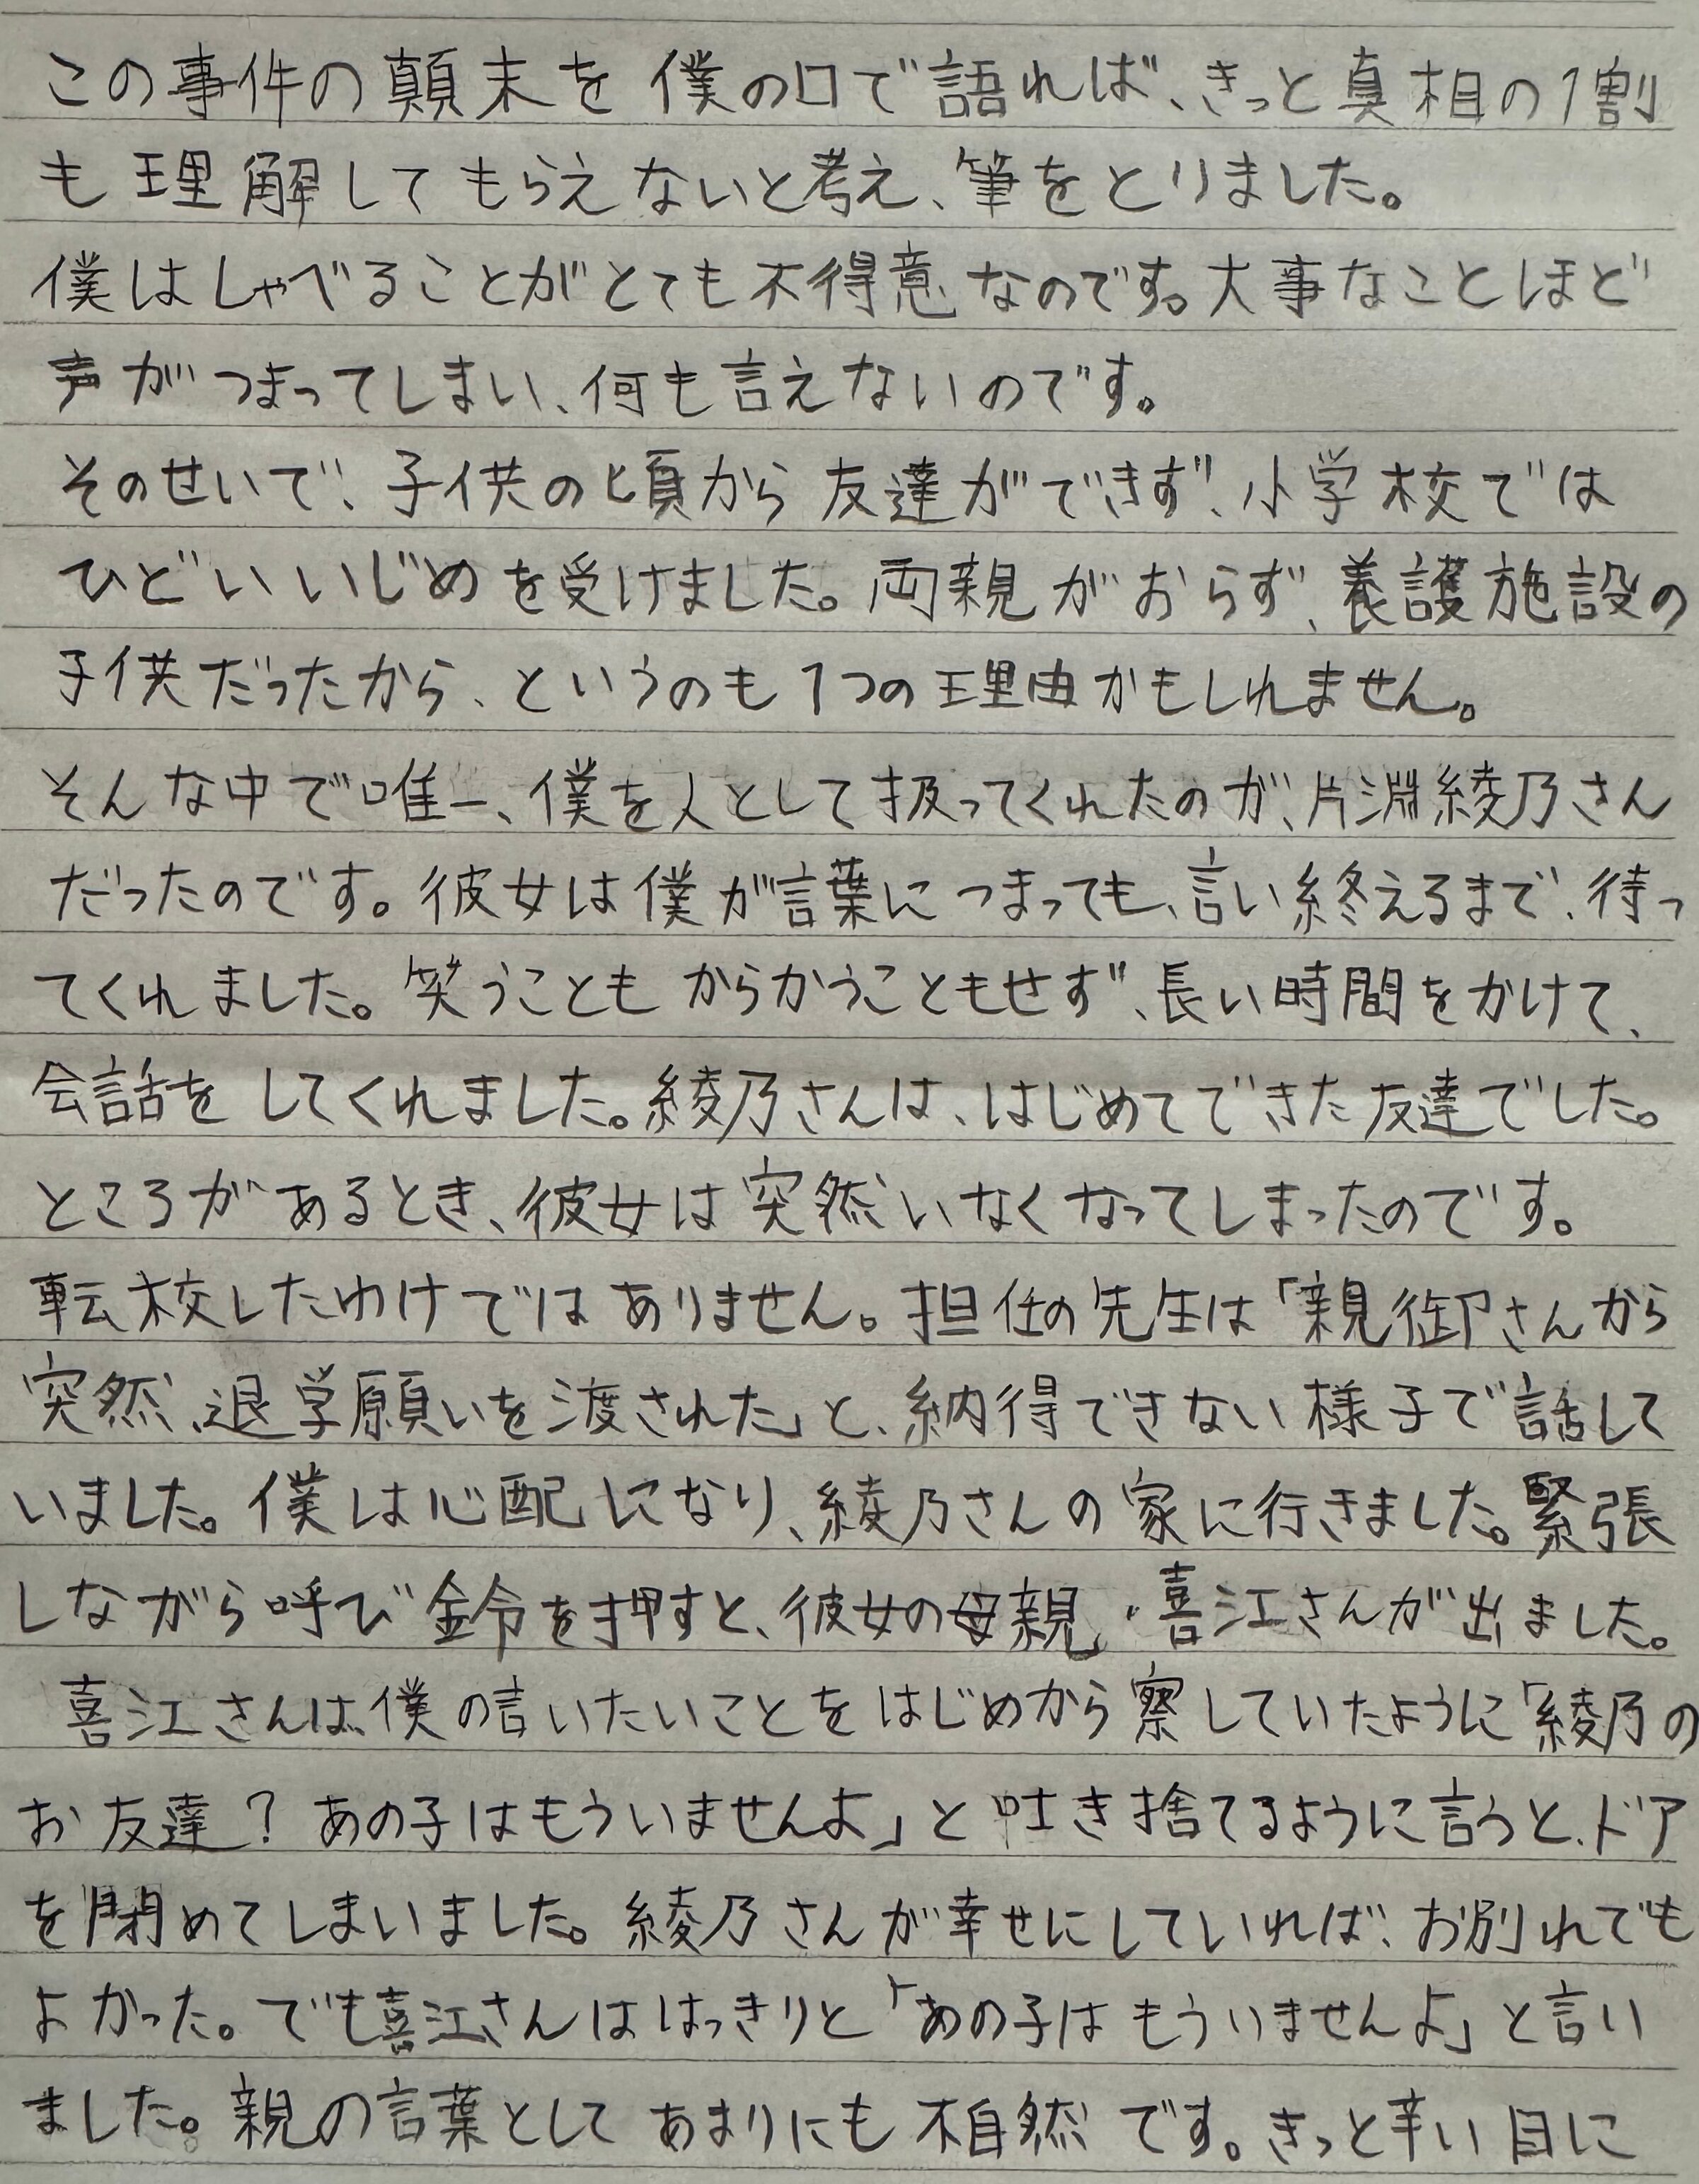 この事件の顛末を僕の口で語れば、きっと真相の1割
も理解してもらえないと考え、筆をとりました。
僕はしゃべることがとても不得意なのです。大事なことほど
声がつまってしまい、何も言えないのです。
そのせいで、子供の頃から友達ができず、小学校では
ひどいいじめを受けました。両親がおらず、養護施設の
子供だったから、というのも1つの理由かもしれません。
そんな中で唯一、僕を人として扱ってくれたのが、片淵綾乃さん
だったのです。彼女は僕が言葉につまっても、言い終えるまで、待っ
てくれました。笑うこともからかうこともせず、長い時間をかけて、
会話をしてくれました。綾乃さんは、はじめてできた友達でした。
ところがあるとき、彼女は突然いなくなってしまったのです。
転校したわけではありません。担任の先生は「親御さんから
突然、退学願いを渡された」と、納得できない様子で話して
いました。僕は心配になり、綾乃さんの家に行きました。緊張
しながら呼び鈴を押すと、彼女の母親・喜江さんが出ました。
喜江さんは、僕の言いたいことをはじめから察していたように「綾乃の
お友達？あの子はもういませんよ」と吐き捨てるように言うと、ドア
を閉めてしまいました。綾乃さんが幸せにしていれば、お別れでも
よかった。でも喜江さんははっきりと「あの子はもういませんよ」と言い
ました。親の言葉としてあまりにも不自然です。きっと辛い目に